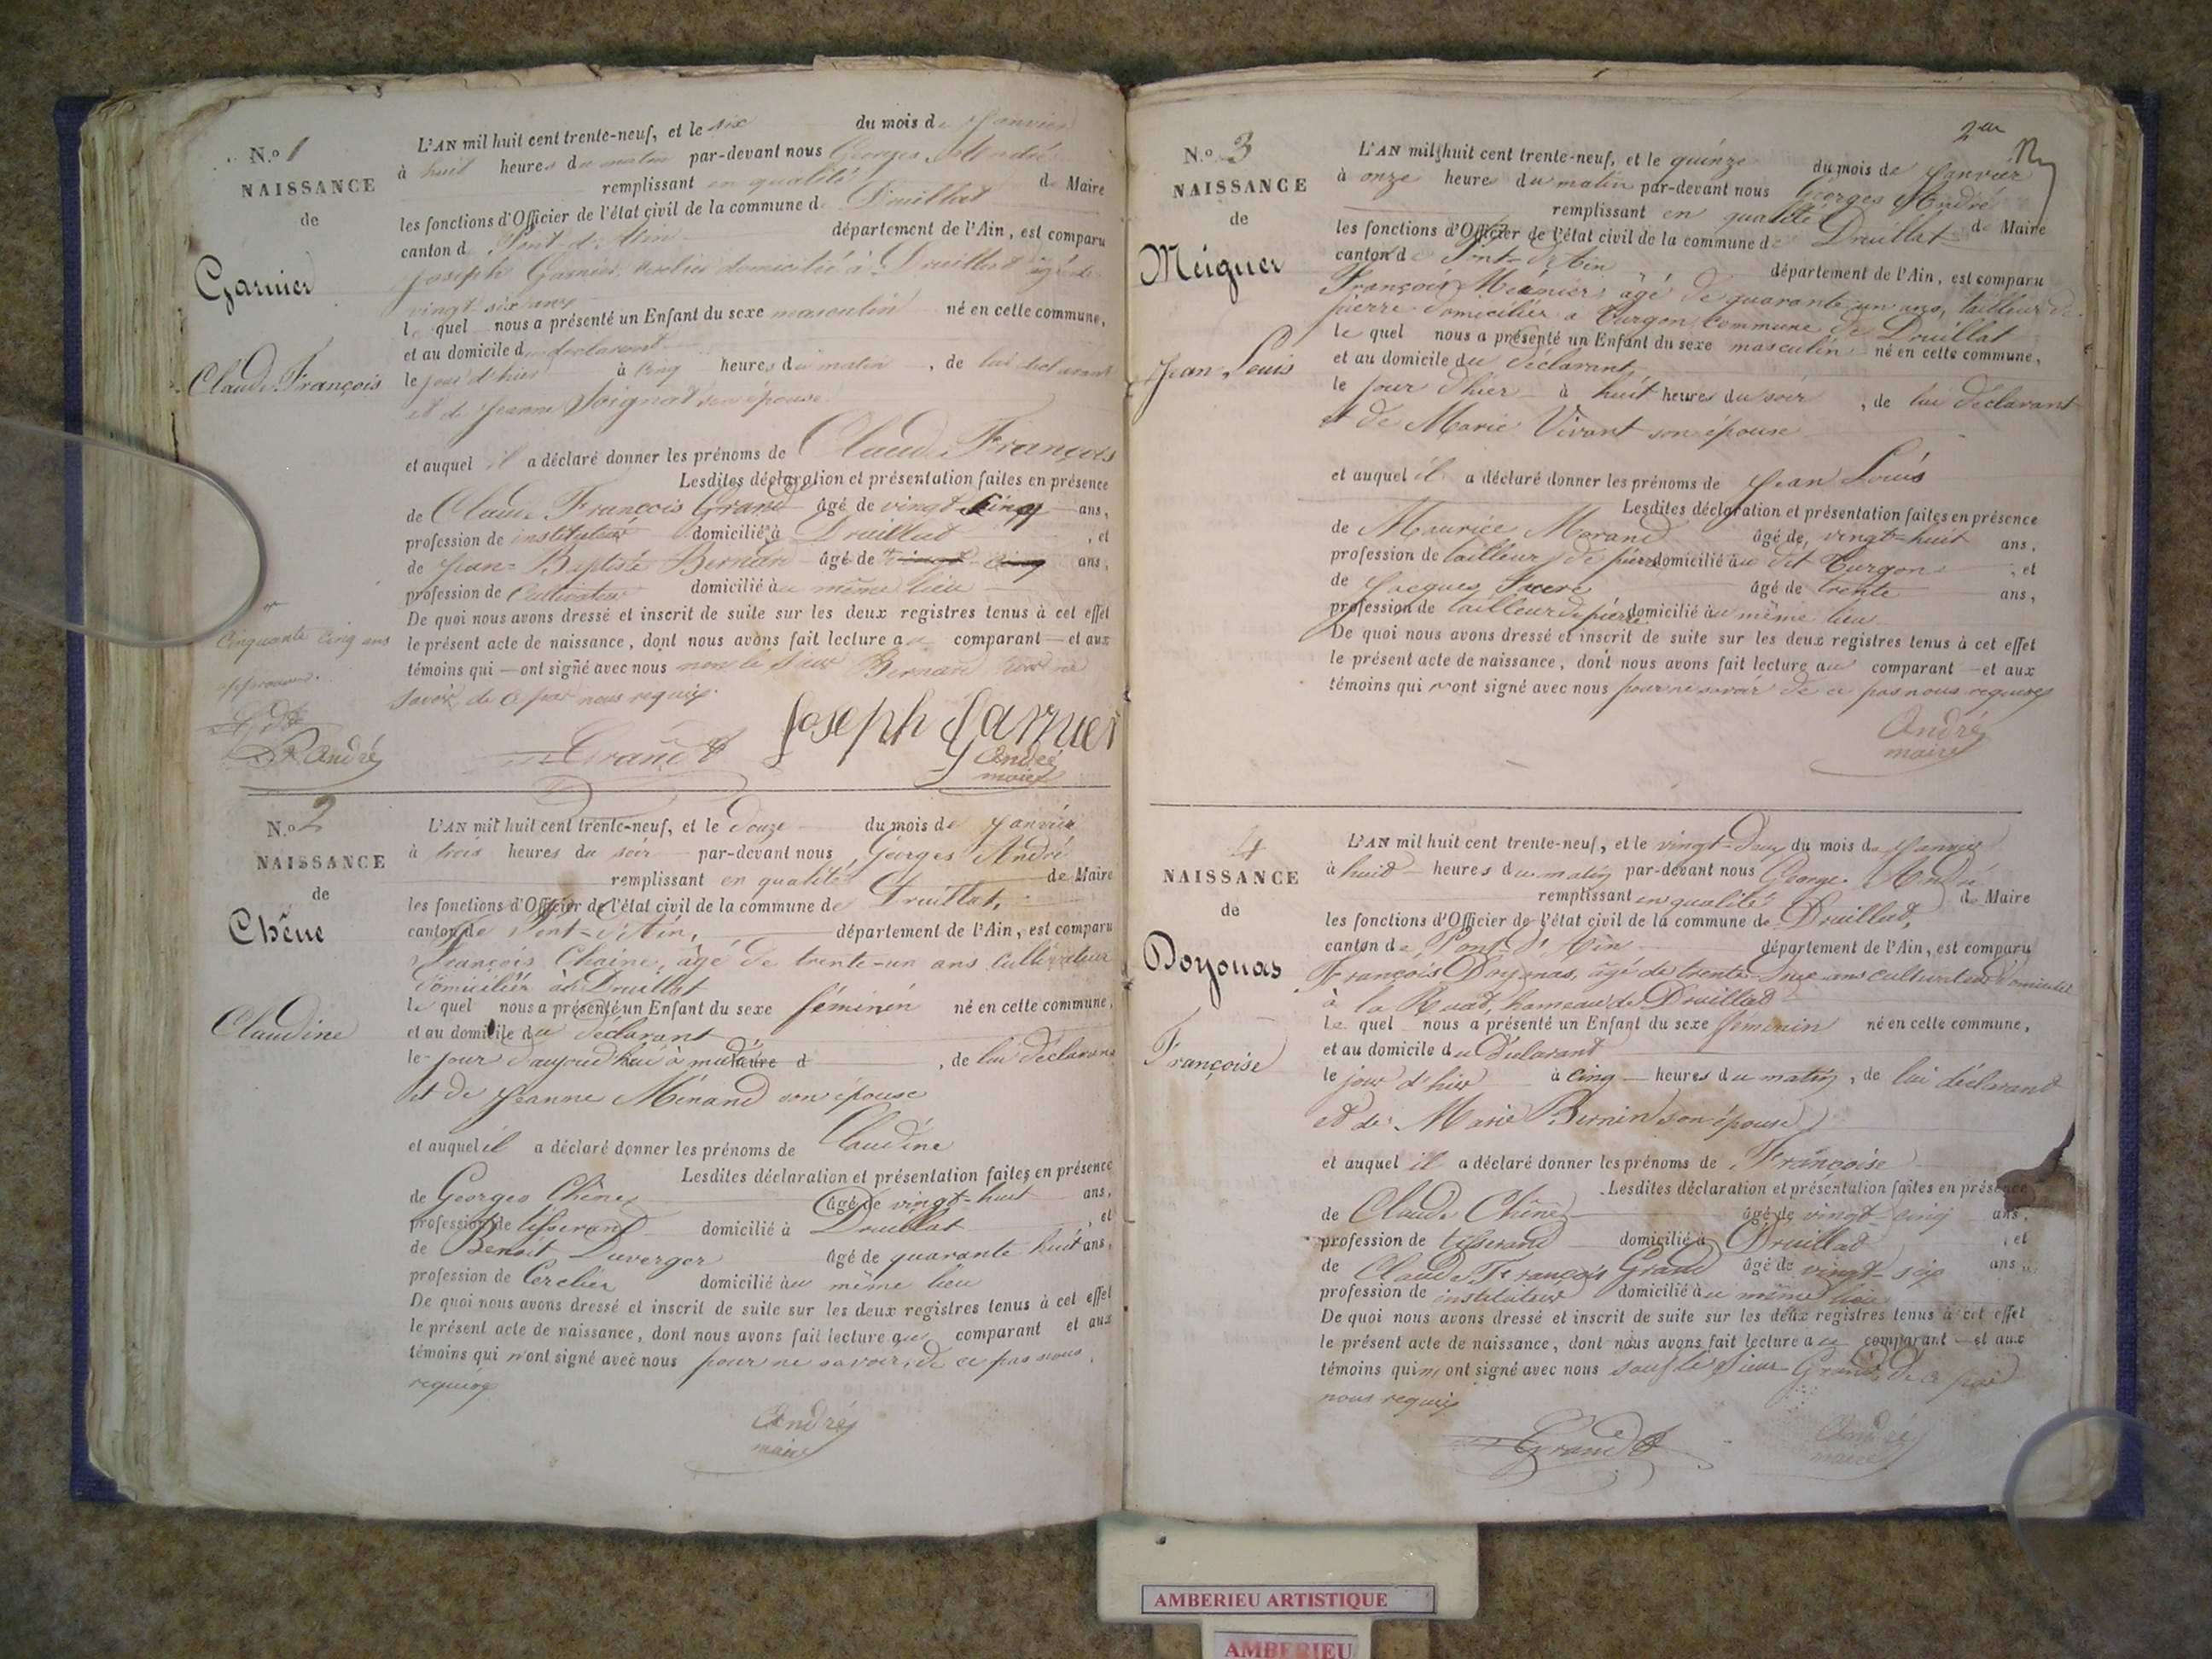 N.º 1
NAISSANCE
de
Garnier
Claude François
L'AN mil huit cent trente-neuf, et le six du mois de Janvier
à huit heures du matin par-devant nous Georges André
remplissant en qualité de Maire
les fonctions d'Officier de l'état civil de la commune de Druillat
canton de Pont-d'Ain département de l'Ain, est comparu
Joseph Garnier, domicilié à Druillat âgé de
vingt-six ans
lequel nous a présenté un Enfant du sexe masculin né en cette commune,
et au domicile du déclarant
le jour d'hier à cinq heures du matin, de lui déclarant
et de Jeanne Soignat son épouse
et auquel il a déclaré donner les prénoms de Claude François
Lesdites déclaration et présentation faites en présence
de Claude François Grand âgé de vingt-cinq ans,
profession de instituteur domicilié à Druillat, et
de Jean-Baptiste Bernard âgé de vingt-cinq ans,
profession de Cultivateur domicilié au même lieu
De quoi nous avons dressé et inscrit de suite sur les deux registres tenus à cet effet
le présent acte de naissance, dont nous avons fait lecture au comparant et aux
témoins qui ont signé avec nous non le Sieur Bernard pour ne
savoir de ce par nous requis.
Cinquante cinq ans
approuvé.
André
Grand
Joseph Garnier
André
maire
N.º 2
NAISSANCE
de
Chêne
Claudine
L'AN mil huit cent trente-neuf, et le douze du mois de Janvier
à trois heures du soir par-devant nous Georges André
remplissant en qualité de Maire
les fonctions d'Officier de l'état civil de la commune de Druillat,
canton de Pont-d'Ain, département de l'Ain, est comparu
François Chaine, âgé de trente-un ans cultivateur
domicilié à Druillat
lequel nous a présenté un Enfant du sexe féminin né en cette commune,
et au domicile du déclarant
le jour d'aujourd'hui à midi heure d, de lui déclarant
et de Jeanne Ménand son épouse
et auquel il a déclaré donner les prénoms de Claudine
Lesdites déclaration et présentation faites en présence
de Georges Chêne âgé de vingt-huit ans,
profession de tisserand domicilié à Druillat, et
de Benoit Duverger âgé de quarante huit ans,
profession de Cerclier domicilié au même lieu
De quoi nous avons dressé et inscrit de suite sur les deux registres tenus à cet effet
le présent acte de naissance, dont nous avons fait lecture au comparant et aux
témoins qui n'ont signé avec nous pour ne savoir, de ce pas nous
requis
André
maire
2me
N.º 3
NAISSANCE
de
Meiguer
Jean Louis
L'AN mil huit cent trente-neuf, et le quinze du mois de Janvier
à onze heures du matin par-devant nous Georges André
remplissant en qualité de Maire
les fonctions d'Officier de l'état civil de la commune de Druillat
canton de Pont-d'Ain département de l'Ain, est comparu
François Meunier, âgé de quarante un ans, tailleur de
pierre domicilié à Turgon commune de Druillat
lequel nous a présenté un Enfant du sexe masculin né en cette commune,
et au domicile du déclarant,
le jour d'hier à huit heures du soir, de lui déclarant
et de Marie Vivant son épouse
et auquel il a déclaré donner les prénoms de Jean Louis
Lesdites déclaration et présentation faites en présence
de Maurice Morand âgé de, vingt-huit ans,
profession de tailleur de pierre domicilié au dit Turgon, et
de Jacques âgé de trente ans,
profession de tailleur de pierre domicilié au même lieu
De quoi nous avons dressé et inscrit de suite sur les deux registres tenus à cet effet
le présent acte de naissance, dont nous avons fait lecture au comparant et aux
témoins qui n'ont signé avec nous pour ne savoir de ce pas nous requis
André
maire
4
NAISSANCE
de
Doyonas
Françoise
L'AN mil huit cent trente-neuf, et le vingt-deux du mois de Janvier
à huit heures du matin par-devant nous George André
remplissant en qualité de Maire
les fonctions d'Officier de l'état civil de la commune de Druillat,
canton de Pont-d'Ain département de l'Ain, est comparu
François Doyonas, âgé de trente ans cultivateur domicilié
à la Ruat, hameau de Druillat
lequel nous a présenté un Enfant du sexe féminin né en cette commune,
et au domicile du Déclarant
le jour d'hier à cinq heures du matin, de lui déclarant
et de Marie Bernin son épouse
et auquel il a déclaré donner les prénoms de Françoise
Lesdites déclaration et présentation faites en présence
de Claude Chêne âgé de vingt-cinq ans,
profession de tisserand domicilié à Druillat, et
de Claude François Grand âgé de vingt-six ans,
profession de instituteur domicilié au même lieu
De quoi nous avons dressé et inscrit de suite sur les deux registres tenus à cet effet
le présent acte de naissance, dont nous avons fait lecture au comparant et aux
témoins qui n'ont signé avec nous sauf le Sieur Grand, de ce par
nous requis
Grand
André
maire
AMBERIEU ARTISTIQUE
AMBERIEU